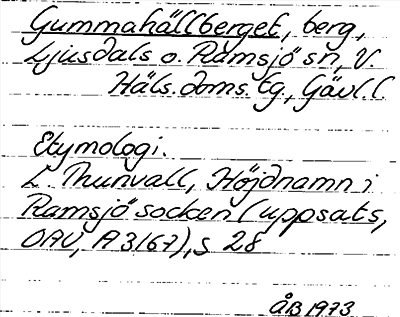 Gummahällberget, berg,
Ljusdals o. Ramsjö sn, V.
Häls. doms. tg., Gävl. l.
Etymologi.
L. Thunvall, Höjdnamn i
Ramsjö socken (uppsats,
OAU, A 3167), s 28
ÅB 1973